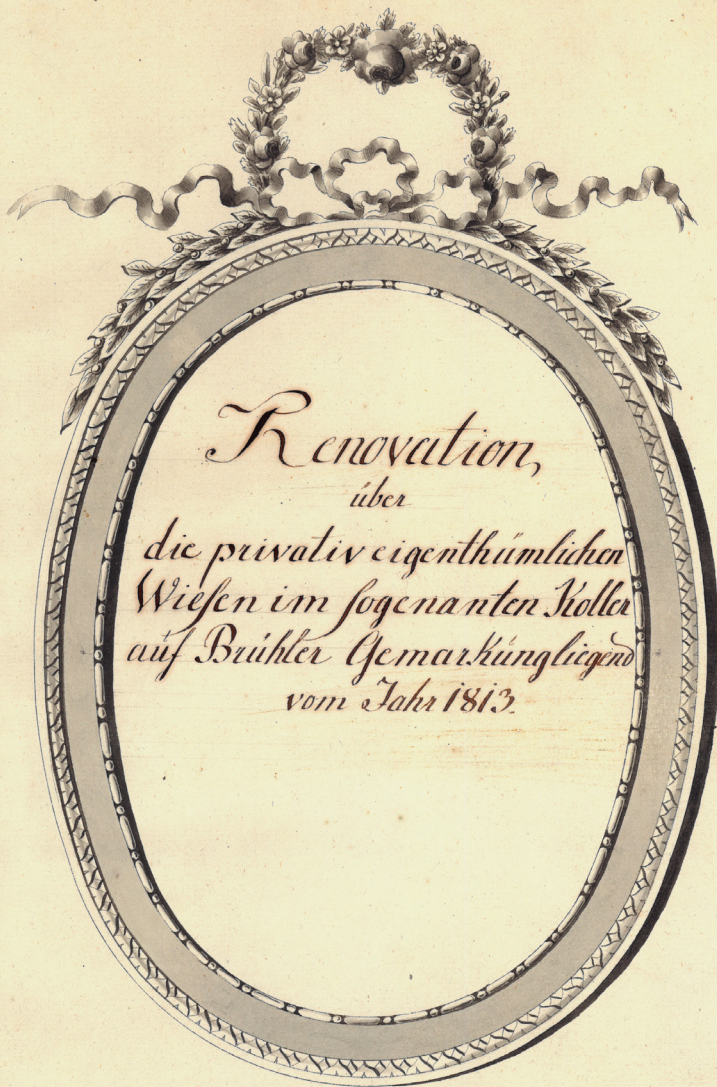 Renovation,
über
die privativ eigenthümlichen
Wiesen im sogenanten Koller
auf Brühler Gemarkung liegend
vom Jahr 1813.